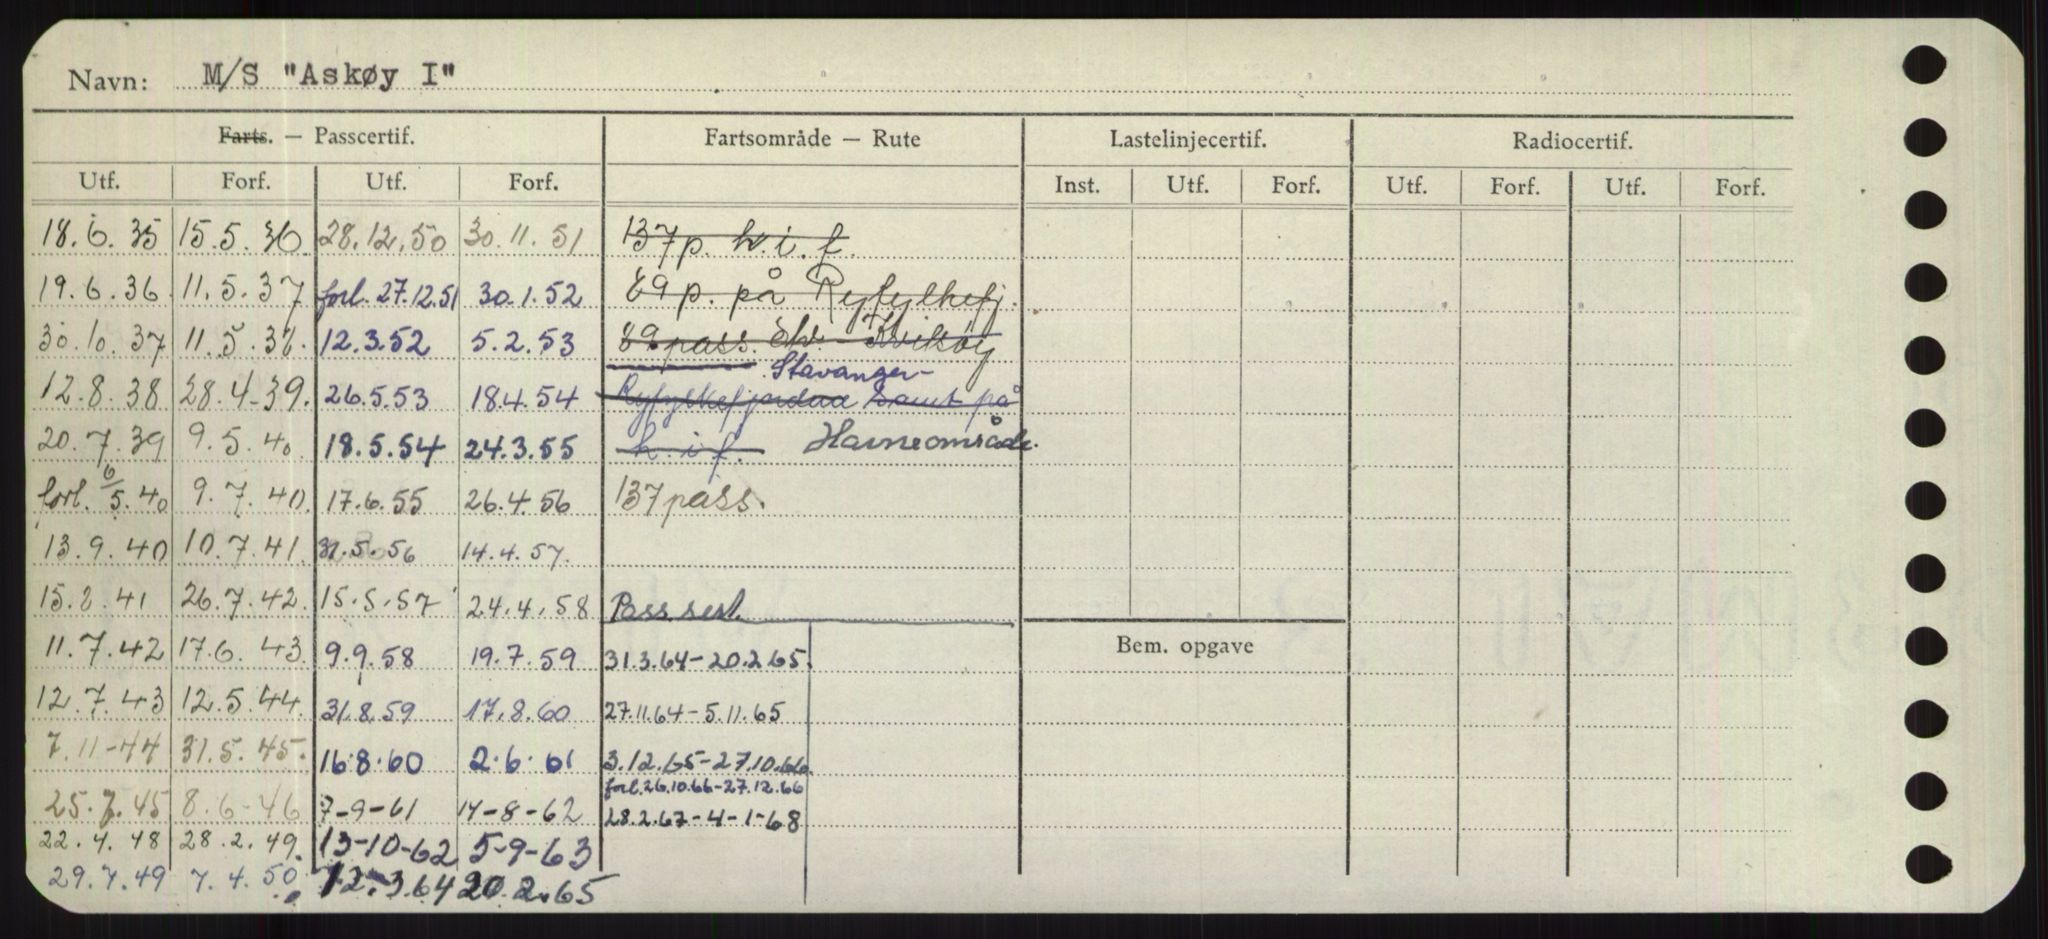 Navn: M/S "Askøy I"
Farts. — Passcertif. Fartsområde — Rute Lastelinjecertif. Radiocertif.
Utf. Forf. Utf. Forf. Inst. Utf. Forf. Utf. Forf. Utf. Forf.
18.6.35 15.5.36 28.12.50 30.11.51 137 p. h.i.f.
19.6.36 11.5.37 forl. 27.12.51 30.1.52 89 p. på Ryfylkefj.
30.10.37 11.5.38. 12.3.52 5.2.53 89 pass.
Stavanger-
12.8.38 28.4-39. 26.5.53 18.4.54 Ryfylkefjordene samt på
20.7.39 9.5.40 18.5.54 24.3.55 h.i.f. Havneområde.
forl. 6/5.40 9.7.40. 17.6.55 26.4.56 137 pass.
13.9.40 10.7.41. 31.5.56 14.4.57.
15.8.41 26.7.42. 15.5.57 24.4.58 Pass.sert.
11.7.42 17.6.43 9.9.58 19.7.59 31.3.64-20.2.65. Bem. opgave
12.7.43 12.5.44. 31.8.59 17.8.60 27.11.64-5.11.65
7.11-44 31.5.45. 16.8.60 2.6.61 3.12.65-27.10.66.
forl. 26.10.66-27.12.66
25.7.45 8.6-46 7-9-61 14-8-62 28.2.67-4-1-68
22.4.48 28.2.49. 13-10-62 5-9-63
29.7.49 7.4.50 12.3.64 20.2.65